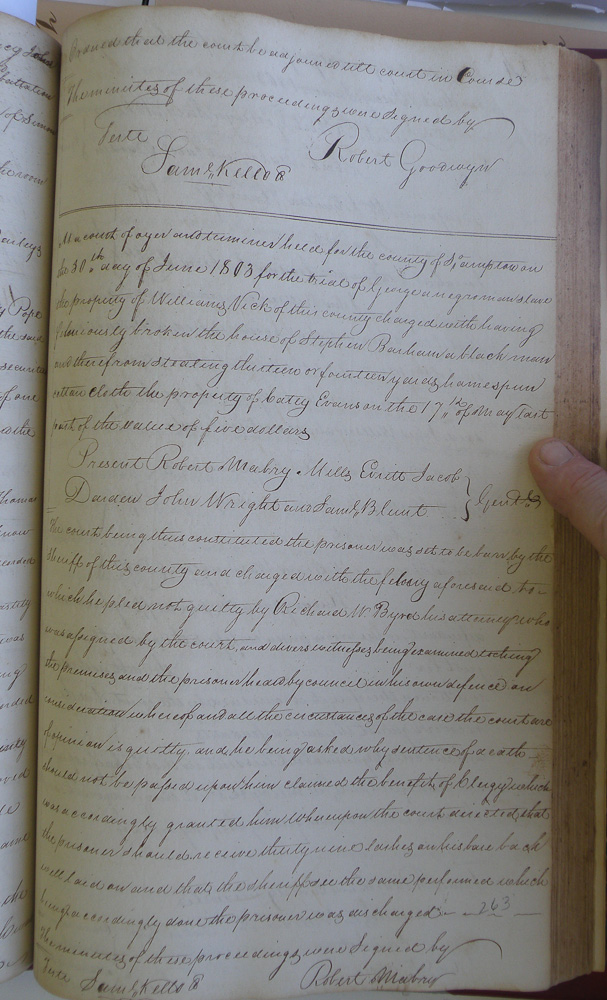 Ordered that the court be adjourned till court in Course
The minutes of these proceedings were signed by
Teste
Robert Goodwyn
Saml. Kello
At a court of oyer and terminer held for the county of S.ampton on
the 30th day of June 1803 for the trial of George a negro man slave
the property of William Vick of this county charged with having
feloniously broke in the house of Stephen Barham a black man
and therefrom stealing thirteen or fourteen yards homespun
cotton cloth the property of Catty Evans on the 17th of May last
past of the value of five dollars
Present Robert Mabry. Mills Eritt Jacob
Darden John Wright and Saml. Blunt
Gent.
The court being thus constituted the prisoner was set to be barr by the
sheriff of this county and charged with the felony aforesaid to
which he pled not guilty by Richard W. Byrd his attorney who
was assigned by the court, and divers witnesses being examined touching
the premises and the prisoner heard by council in his own defence on
consideration whereof and all the circumstances of the case the court are
of opinion is guilty, and he being asked why sentence of death
should not be passed upon him claimed the benefit of Clergy which
was accordingly granted him Whereupon the court directed that
the prisoner should receive thirty nine lashes on his bare back
well laid on and that the sheriff see the same performed which
being accordingly done the prisoner was discharged - 263
The minutes of these proceedings were Signed by
Teste Saml. Kello
Robert Mabry